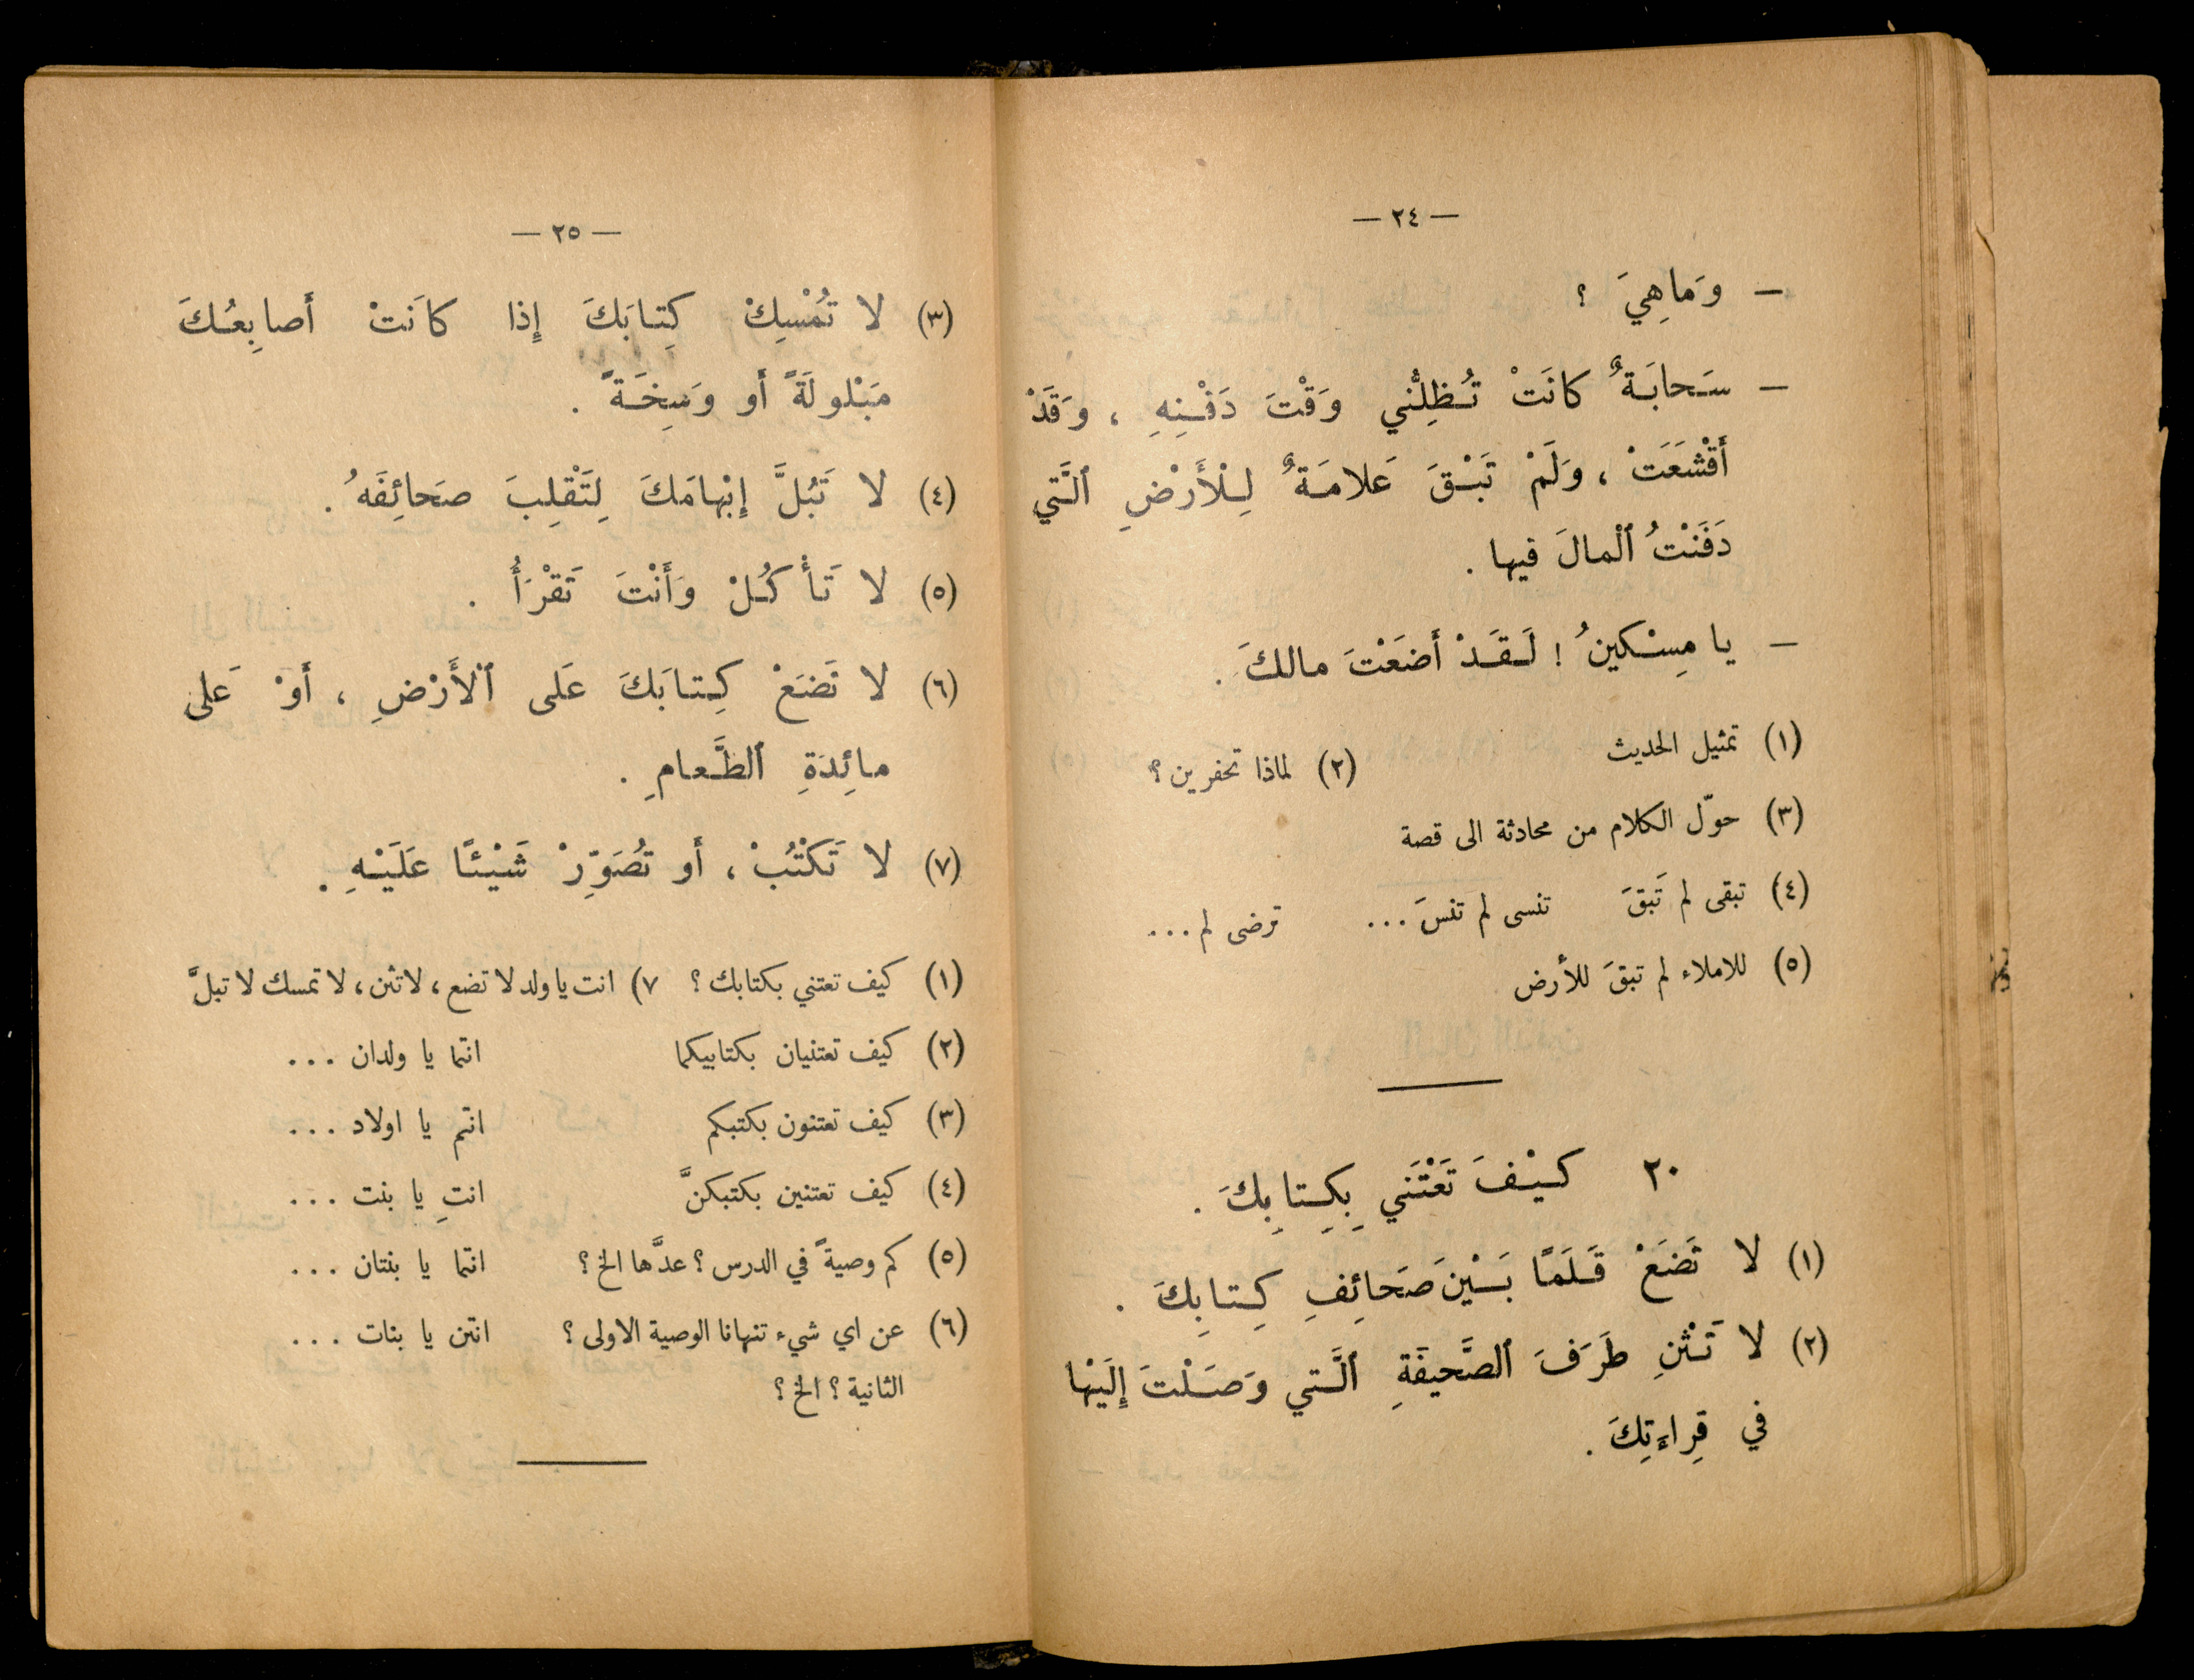 — ٢٤ —
— وَماهِيَ ؟
— سَحابَةٌ كانَتْ تُظِلُّني وَقْتَ دَفْنِهِ ، وَقَدْ
أَقْشَعَتْ ، وَلَمْ تَبْقَ عَلامَةٌ لِلْأَرْضِ ٱلَّتي
دَفَنْتُ ٱلْمالَ فيها .
— يا مِسْكينُ ! لَقَدْ أَضَعْتَ مالكَ .
(١) تمثيل الحديث (٢) لماذا تحفرين ؟
(٣) حوّل الكلام من محادثة الى قصة
(٤) تبقى لم تَبقَ تنسى لم تنسَ ... ترضى لم ...
(٥) للاملاء لم تبقَ للأرض
٢٠ كَيْفَ تَعْتَني بِكِتابِكَ .
(١) لا تَضَعْ قَلَمًا بَيْنَ صَحَائِفِ كِتابِكَ .
(٢) لا تَثْنِ طَرَفَ ٱلصَّحيفَةِ ٱلَّتي وَصَلْتَ إِلَيْها
في قِراءَتِكَ .
— ٢٥ —
(٣) لا تُمْسِكْ كِتابَكَ إِذا كانَتْ أَصابِعُكَ
مَبْلولَةً أَو وَسِخَةً .
(٤) لا تَبُلَّ إِبْهامَكَ لِتَقْلِبَ صَحائِفَهُ .
(٥) لا تَأْكُلْ وَأَنْتَ تَقْرَأُ .
(٦) لا تَضَعْ كِتابَكَ عَلَى ٱلْأَرْضِ ، أَوْ عَلى
مائِدَةِ ٱلطَّعامِ .
(٧) لا تَكْتُبْ ، أَو تُصَوِّرْ شَيْئًا عَلَيْهِ .
(١) كيف تعتني بكتابك ؟ ٧) انت يا ولد لا تضع ، لا تثن ، لا تمسك لا تبلَّ
(٢) كيف تعتنيان بكتابيكما انتما يا ولدان ...
(٣) كيف تعتنون بكتبكم انتم يا اولاد ...
(٤) كيف تعتنين بكتبكنَّ انتِ يا بنت ...
(٥) كم وصيةً في الدرس ؟ عدَّها الخ ؟ انتما يا بنتان ...
(٦) عن اي شيء تنهانا الوصية الاولى ؟ انتن يا بنات ...
الثانية ؟ الخ ؟